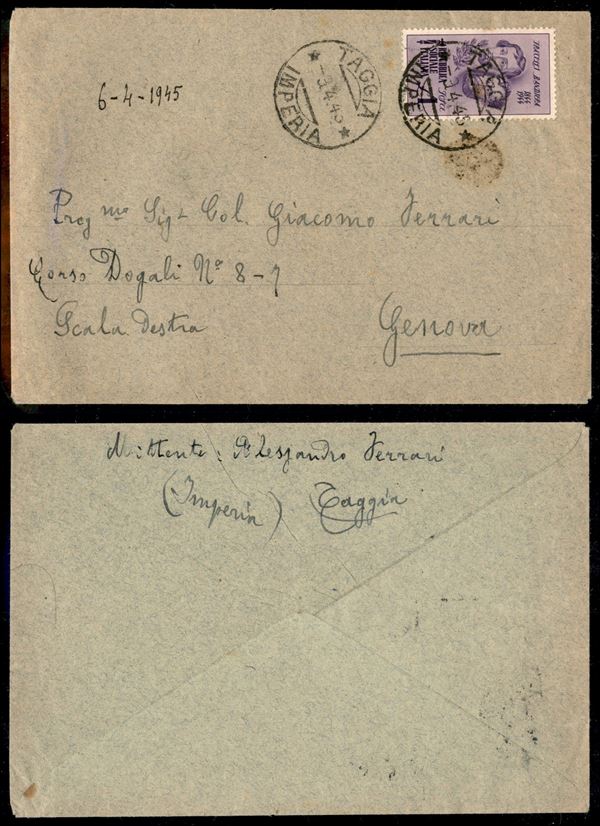 6-4-1945
TAGGIA
-3.4.45
IMPERIA
TAGGIA
4.45
IMPERIA
FRATELLI BANDIERA
1844
1944
REPUBBLICA
SOCIALE
ITALIANA
1 LIRA
Preg mo Sigr Col. Giacomo Ferrari
Corso Dogali No 8-7
Scala Destra
Genova
Mittente: Alessandro Ferrari
(Imperia) Taggia